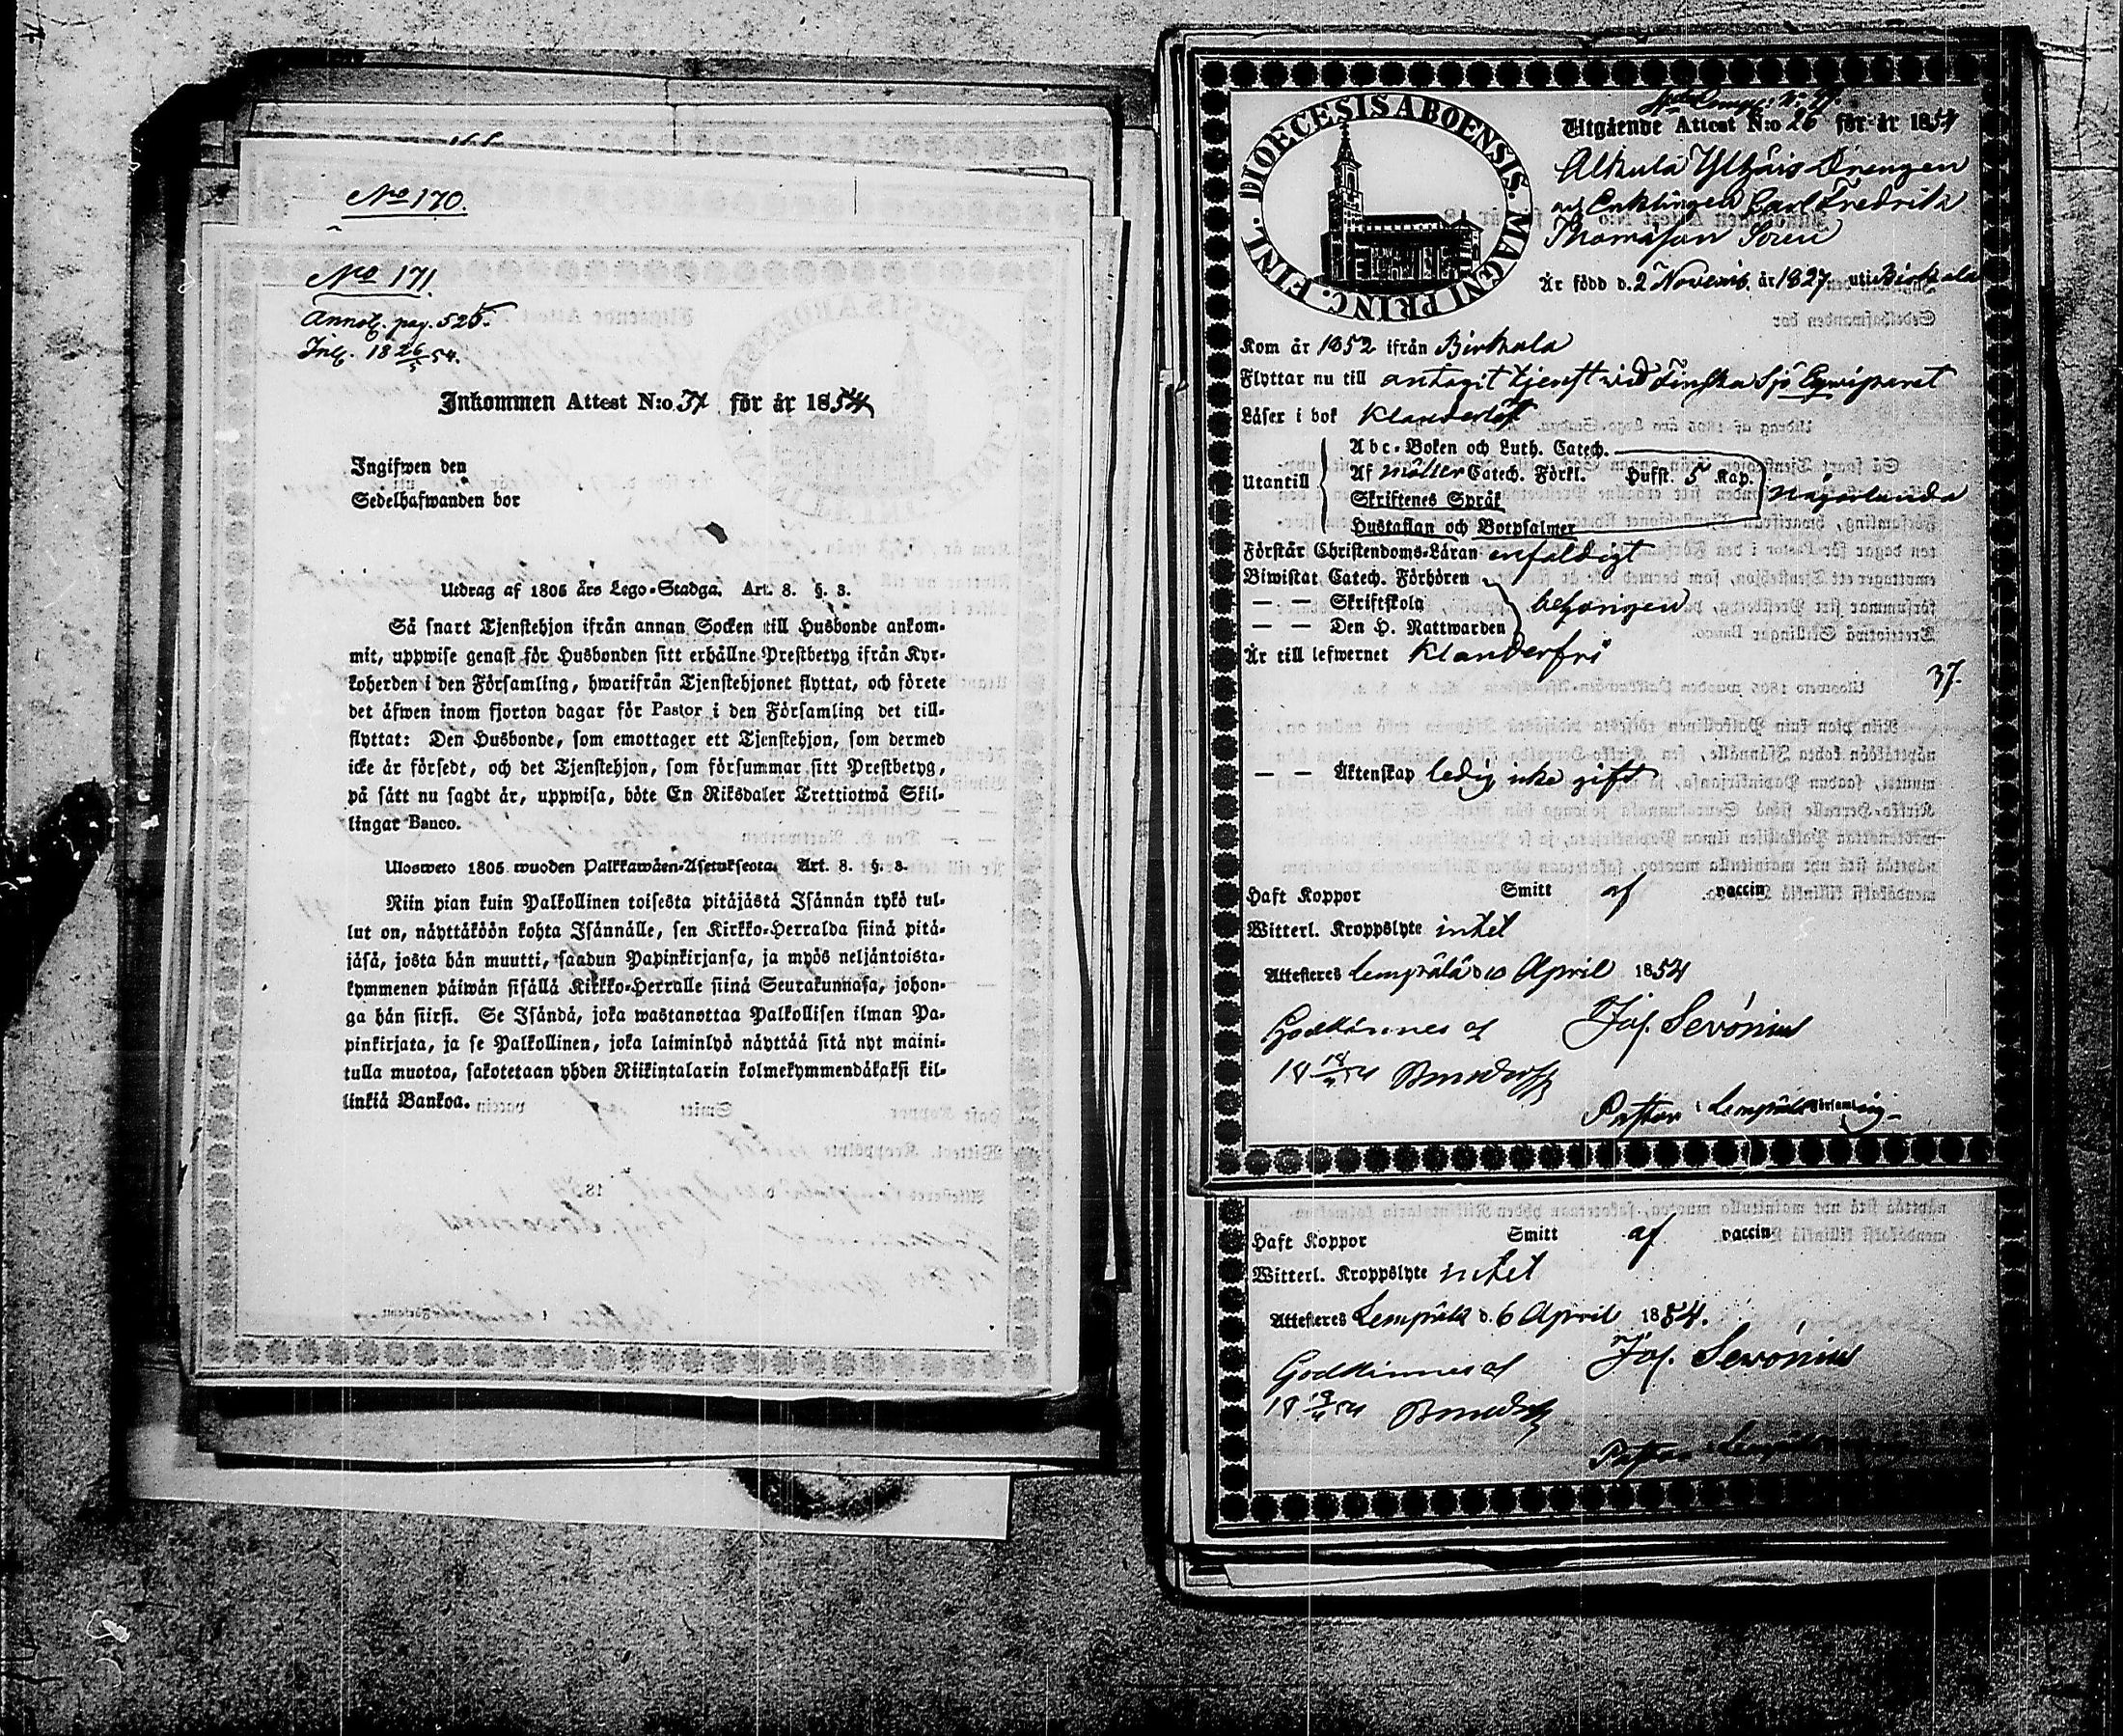 No 170.
No 171.
Annot. pag. 525.
Inl. 18 26/5 54.
Inkommen Attest N:o 37 för år 1854
Ingifwen den
Sedelhafwanden bor
Utdrag af 1805 års Lego-Stadga. Art. 8. §. 3.
Så snart Tjenstehjon ifrån annan Socken till Husbonde ankom-
mit, uppwise genast för Husbonden sitt erhållne Prestbetyg ifrån Kyr-
koherden i den Församling, hwarifrån Tjenstehjonet flyttat, och förete
det äfwen inom fjorton dagar för Pastor i den Församling det till-
flyttat: Den Husbonde, som emottager ett Tjenstehjon, som dermed
icke är försedt, och det Tjenstehjon, som försummar sitt Prestbetyg,
på sätt nu sagdt är, uppwisa, böte En Riksdaler Trettiotwå Skil-
lingar Banco.
Uloswето 1805 wuoden Palkkawäen-Asetuksesta. Art. 8. §. 3.
Niin pian kuin Palkollinen toisesta pitäjästä Isännän tykö tul-
lut on, näyttäköön kohta Isännälle, sen Kirkko-Herralda siinä pitä-
jäsä, josta hän muutti, saadun Papinkirjansa, ja myös neljäntoista-
kymmenen päiwän sisällä Kirkko-Herralle siinä Seurakunnasa, johon-
ga hän siirsi. Se Isändä, joka wastanottaa Palkollisen ilman Pa-
pinkirjata, ja se Palkollinen, joka laiminlyö näyttää sitä nyt maini-
tulla muotoa, sakotetaan yhden Riikintalarin kolmekymmendäkaksi kil-
linkiä Bankoa.
DIOECESIS ABOENSIS. MAGNI PRINC. FINL.
Utgående Attest N:o 26 för år 1854
Alkula Yltjäis Drengen
Enklingen Carl Fredrik
Thomasson Soren
Är född d. 2 Novemb. år 1827 uti Birkala
Kom år 1852 ifrån Birkala
Flyttar nu till antagit tjenst wid Finska Sjö Eqwipaget
Läser i bok Klanderlöst
Abc-Boken och Luth. Catech.
Utantill Af möller Catech. Förkl. Hufst. 5 Kap. någorlunda
Skriftenes Språk
Hustaflan och Botpsalmer
Förstår Christendoms-Läran enfaldigt
Biwistat Catech. Förhören
— — Skriftskola behörigen
— — Den H. Nattwarden
Är till lefwernet Klanderfri
37.
— — Äktenskap ledig, icke gift
Haft Koppor Smitt af vaccin
Witterl. Kroppslyte intet
Attesteres Lempälä d. 10 April 1854
Godkännes af Joh. Sevónius
18 18/4 54
Pastor i Lempälä Församling
Haft Koppor Smitt af vaccin
Witterl. Kroppslyte intet
Attesteres Lempälä d. 6 April 1854.
Godkännes af Joh. Sevónius
Pastor